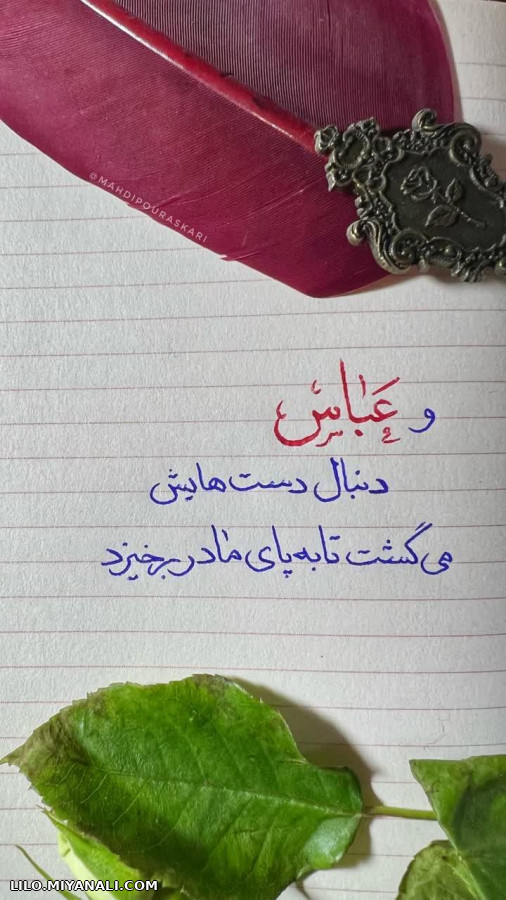 @MAHDIPOURASKARI
و عَبّاسْ
دنبال دست‌هایش
می‌گشت تا به پای مادر برخیزد
LILO.MIYANALI.COM